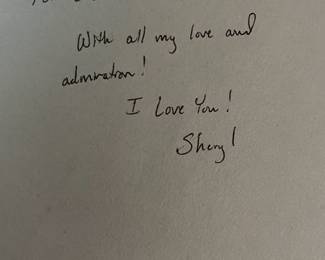 With all my love and
admiration!
I Love You!
Sheryl